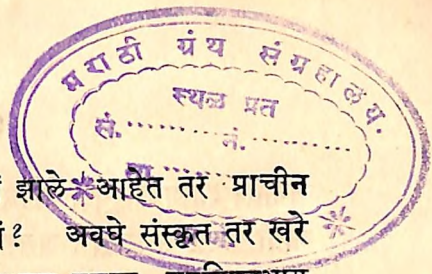 मराठी ग्रंथ संग्रहालय.
स्थळ प्रत
सं............ नं............
झाले आहेत तर प्राचीन
? अवघे संस्कृत तर खरे